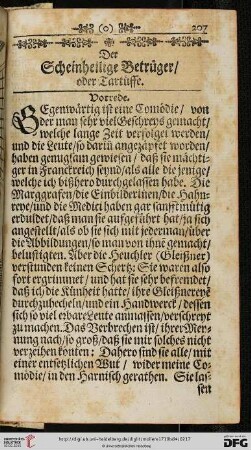 (0) 207
Der
Scheinheilige Betrüger/
oder Tartuffe.
Vorrede.
GEgenwärtig ist ein Comödie/ von
der man sehr viel Geschreys gemacht/
welche lange Zeit verfolget werden/
und die Leute/ so darin angezäpfet worden/
haben genugsam gewiesen/ daß sie mächti-
ger in Franckreich seynd/ als alle die jenige/
welche ich bißhero durchgelassen habe. Die
Marggraffen/ die Einbilderinen/ die Hahn-
reye/ und die Medici haben gar sanfftmütig
erduldet/ daß man sie auffgeführt hat/ ja sich
angestellt/ als ob sie sich mit jederman/ über
die Abbildungen/ so man von ihnē gemacht/
belustigten. Aber die Heuchler (Gleißner)
verstunden keinen Schertz: Sie waren also
fort ergrimmet/ und haben sie sehr befremdet/
daß ich die Künheit hatte/ ihre Gleißnereyē
durchzuhecheln/ und ein Handwerck/ dessen
sich so viel erbare Leute anmassen/ verschreyt
zu machen. Das Verbrechen ist/ ihrer Mey-
nung nach/ so groß/ daß sie mir solches nicht
verzeihen konten: Dahero sind sie alle/ mit
einer entsetzlichen Wut/ wider meine Co-
mödie/ in den Harnisch gerathen. Sie las-
sen